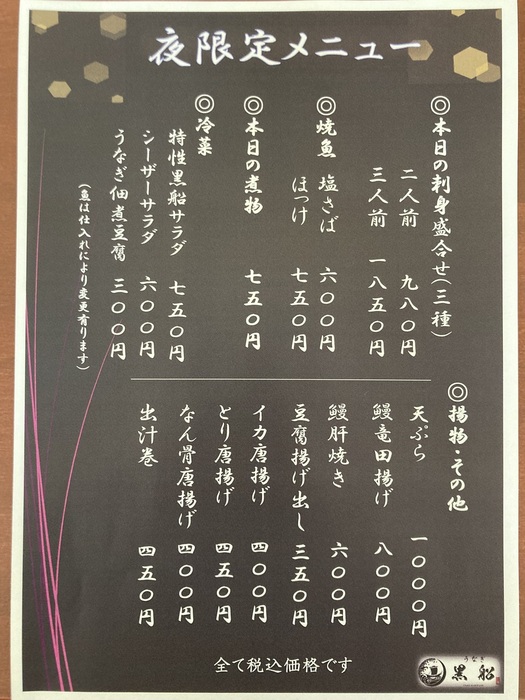 夜限定メニュー
◎本日の刺身盛合せ(三種)
二人前 九八〇円
三人前 一八五〇円
◎焼魚 塩さば 六〇〇円
ほっけ 七五〇円
◎本日の煮物 七五〇円
◎冷菜
特性黒船サラダ 七五〇円
シーザーサラダ 六〇〇円
うなぎ佃煮豆腐 三〇〇円
(魚は仕入れにより変更有ります)
◎揚物・その他
天ぷら 一〇〇〇円
鰻竜田揚げ 八〇〇円
鰻肝焼き 六〇〇円
豆腐揚げ出し 三五〇円
イカ唐揚げ 四〇〇円
とり唐揚げ 四五〇円
なん骨唐揚げ 四〇〇円
出汁巻 四五〇円
全て税込価格です
うなぎ
黒船